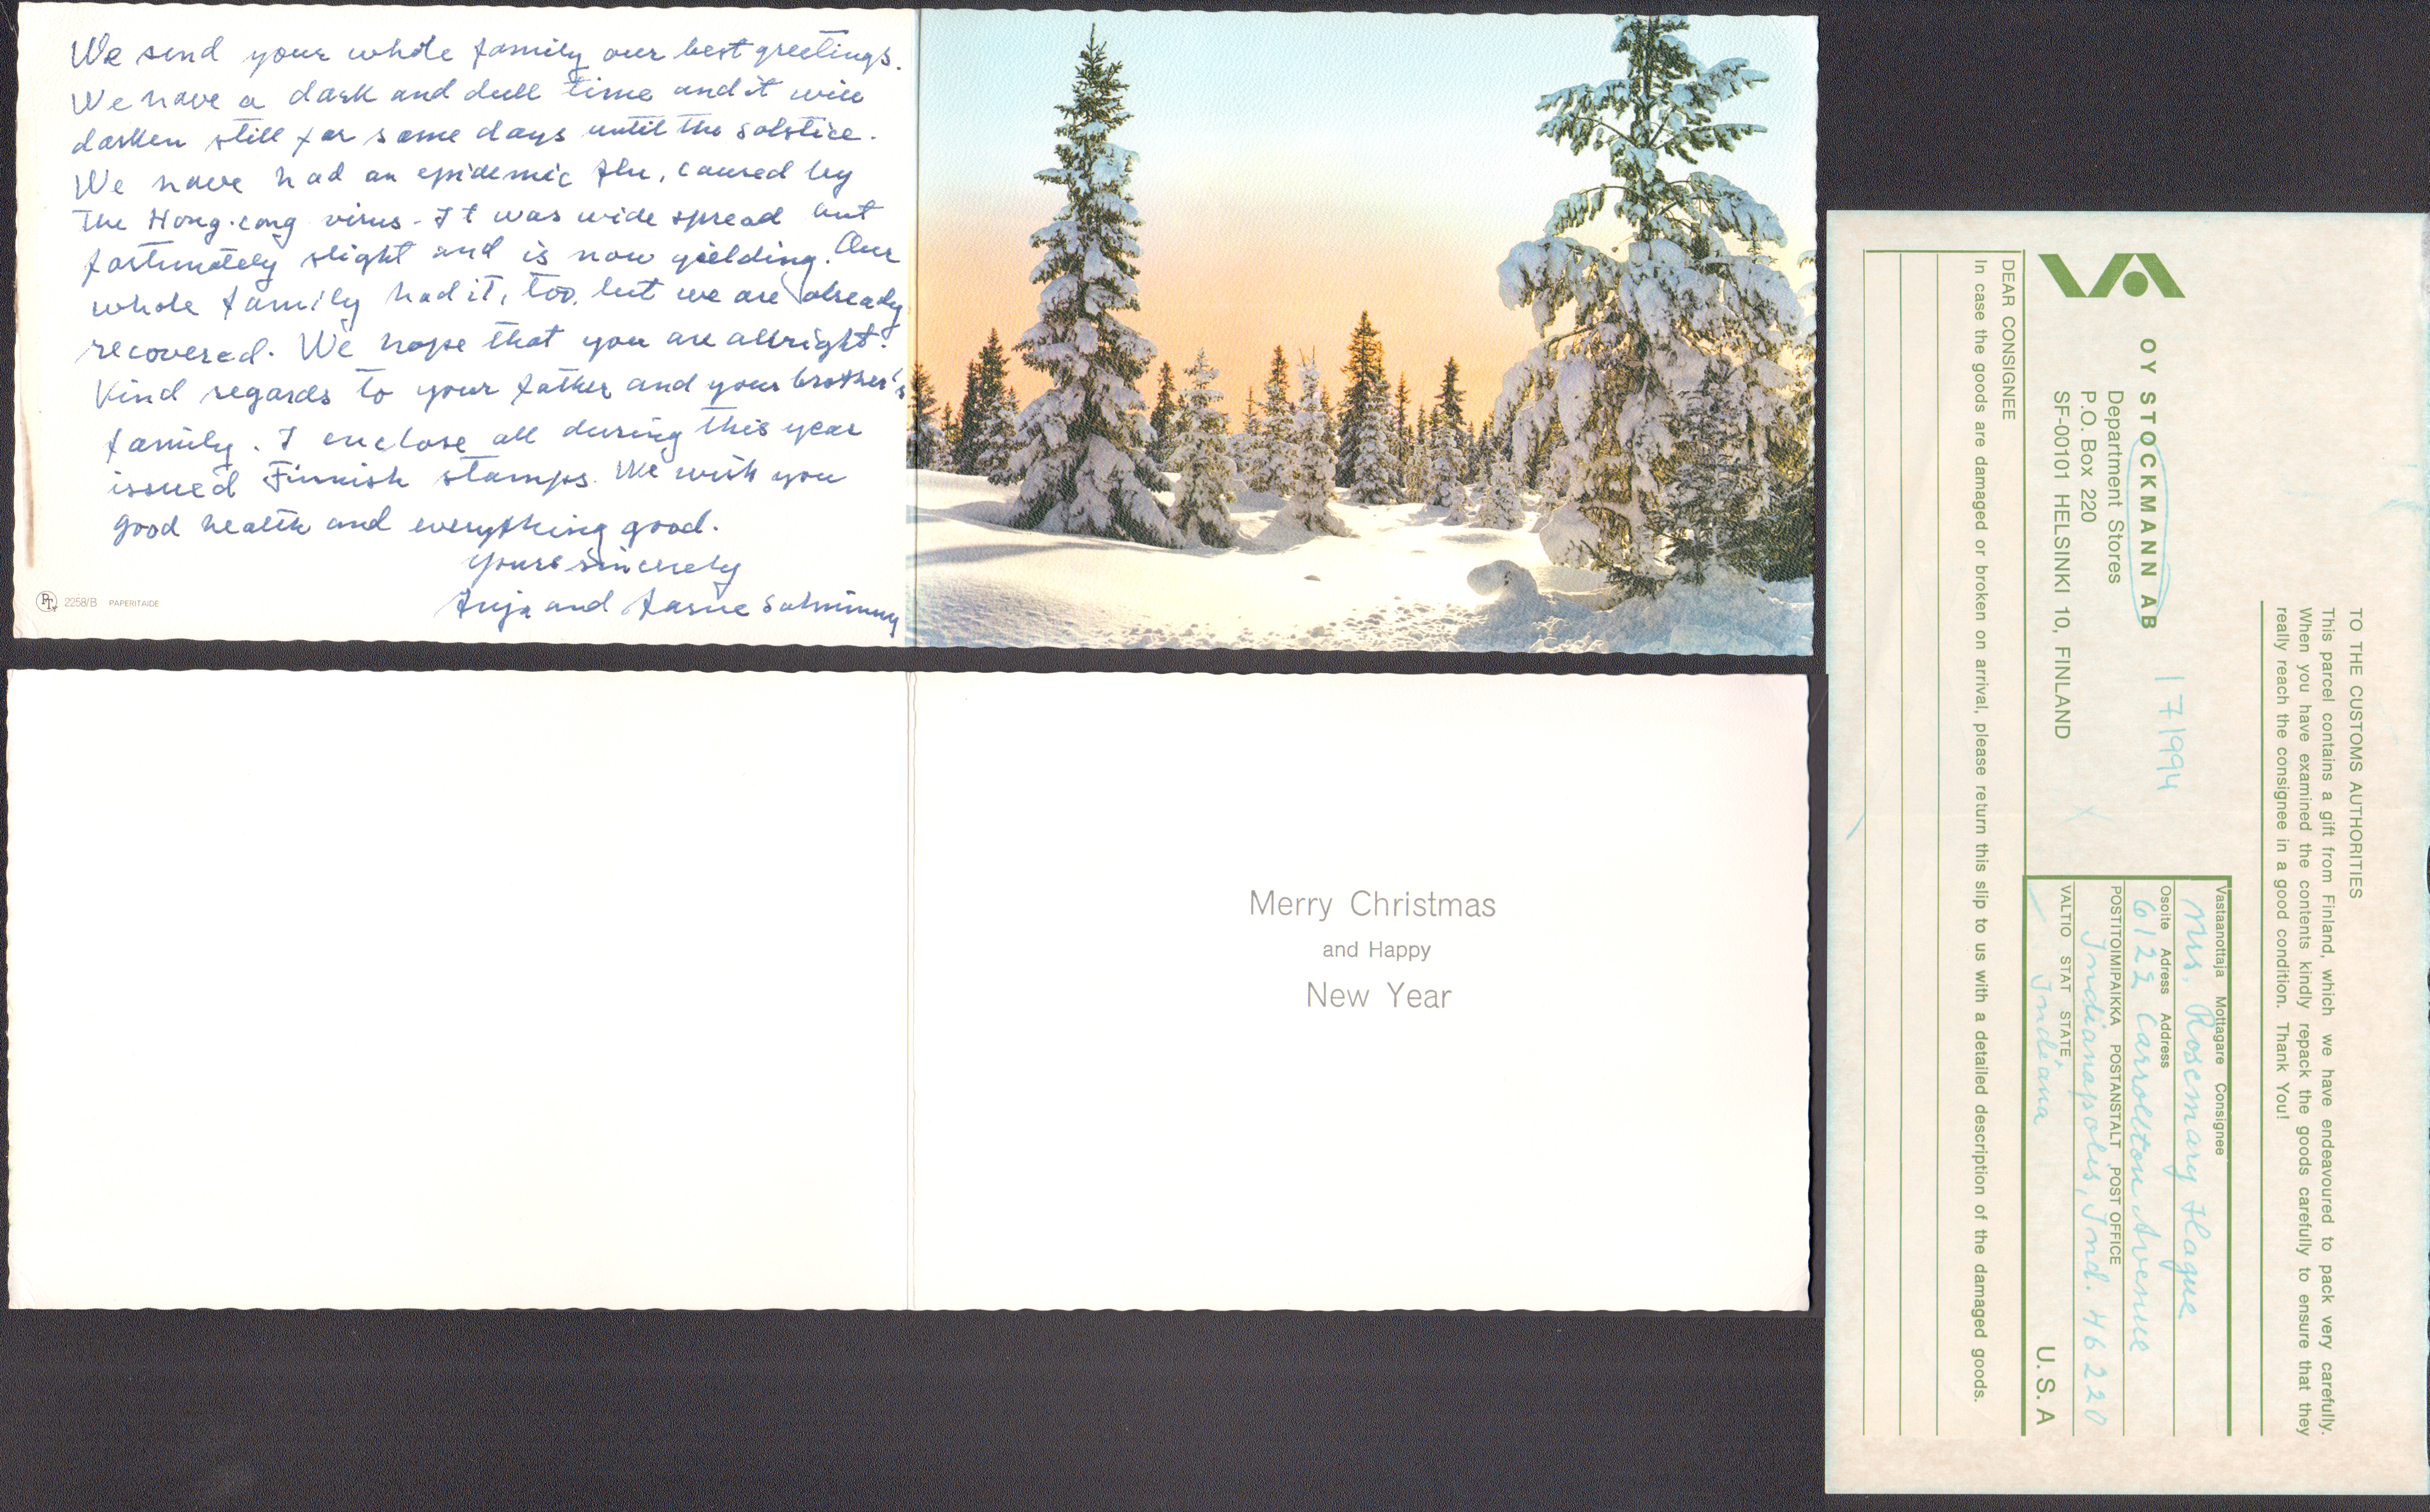 We send your whole family our best greetings.
We have a dark and dull time and it will
darken still for some days until the solstice.
We have had an epidemic flu, caused by
the Hong-cong virus. It was wide spread but
fortunately slight and is now yielding. Our
whole family had it, too, but we are already
recovered. We hope that you are allright.
Kind regards to your father and your brother's
family. I enclose all during this year
issued Finnish stamps. We wish you
good health and everything good.
Yours sincerely
and
PT 2258/B PAPERITAIDE
Merry Christmas
and Happy
New Year
TO THE CUSTOMS AUTHORITIES
This parcel contains a gift from Finland, which we have endeavoured to pack very carefully.
When you have examined the contents kindly repack the goods carefully to ensure that they
really reach the consignee in a good condition. Thank You!
OY STOCKMANN AB
Department Stores
P.O. Box 220
SF-00101 HELSINKI 10, FINLAND
171994
Vastaanottaja Mottagare Consignee
Mrs. Rosemary Hague
Osoite Adress Address
6122 Carrollton Avenue
POSTITOIMIPAIKKA POSTANSTALT POST OFFICE
Indianapolis, Ind. 46220
VALTIO STAT STATE
Indiana
U.S.A
DEAR CONSIGNEE
In case the goods are damaged or broken on arrival, please return this slip to us with a detailed description of the damaged goods.